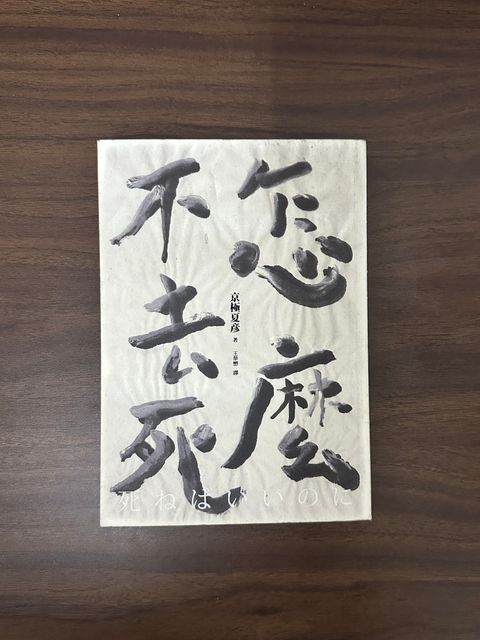 怎麼
京極夏彥 著 王華懋 譯
不去死
死ねばいいのに